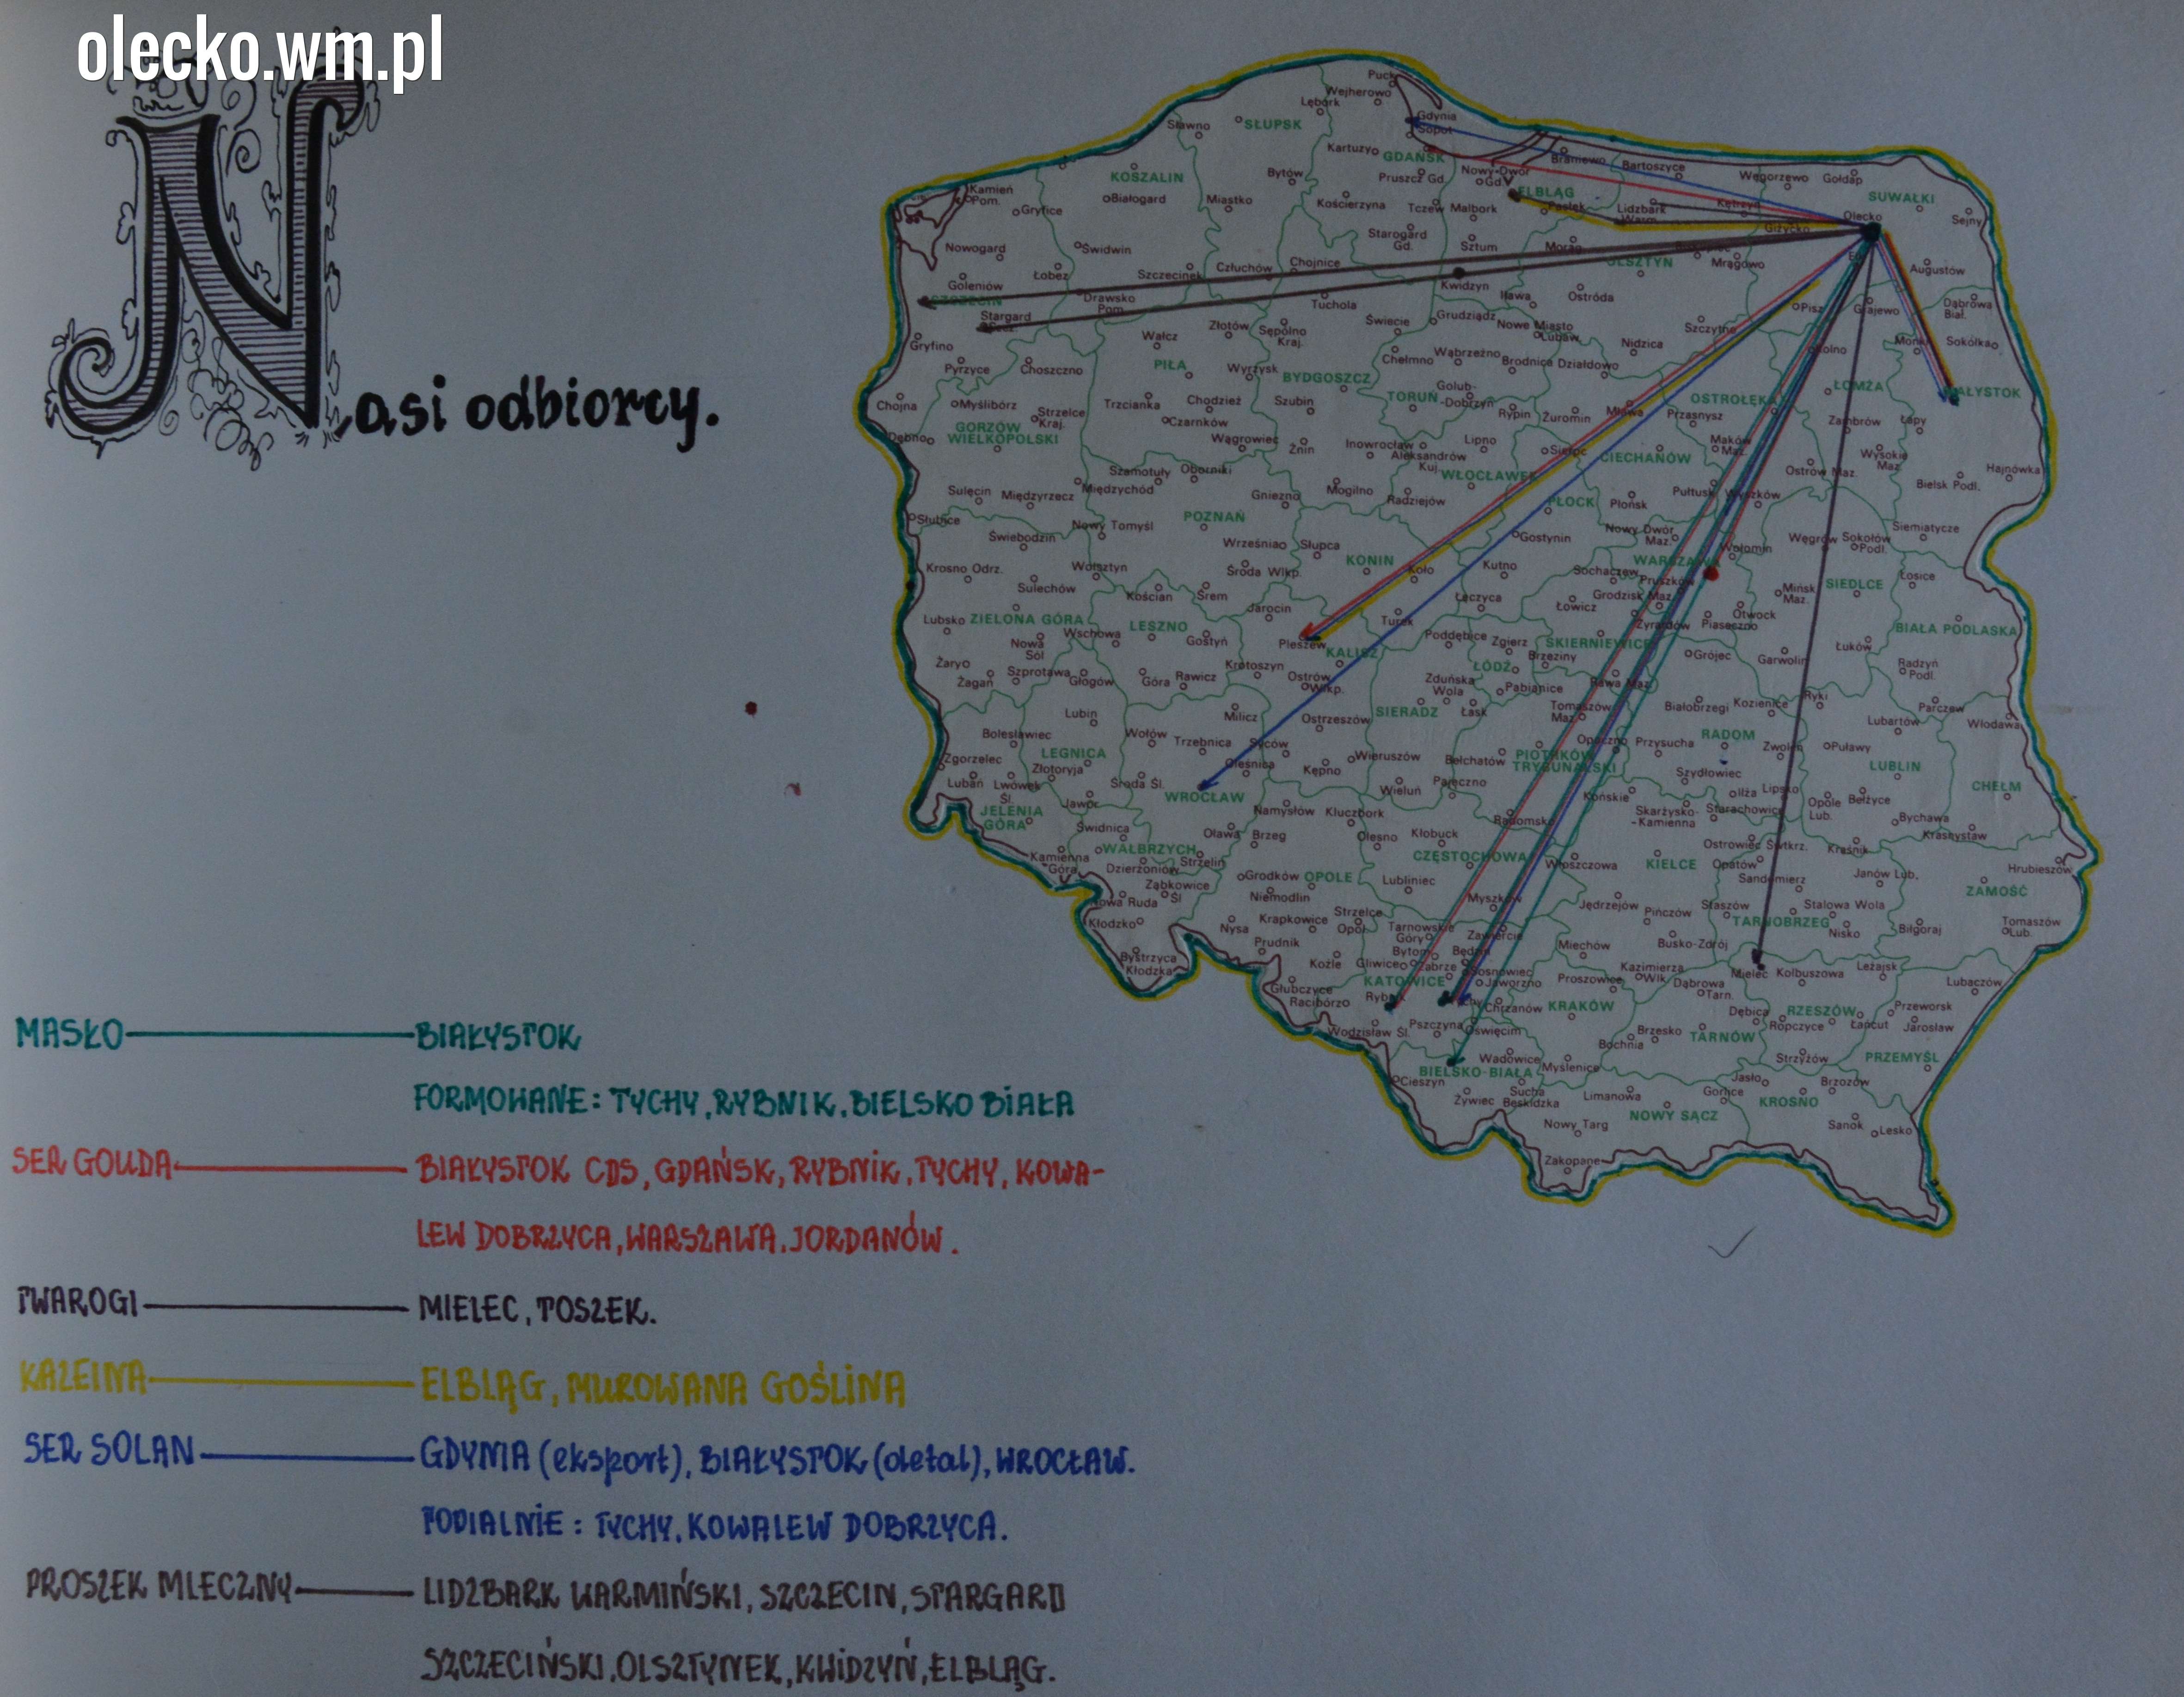 olecko.wm.pl
Nasi odbiorcy.
Puck
Wejherowo
Lębork
Gdynia
Sopot
Sławno
SŁUPSK
Kartuzy
GDAŃSK
Nowy Dwór
Gd.
Braniewo
Bartoszyce
Węgorzewo
Gołdap
SUWAŁKI
KOSZALIN
Bytów
Pruszcz Gd.
ELBLĄG
Kamień
Pom.
Gryfice
Białogard
Miastko
Kościerzyna
Tczew
Malbork
Pasłęk
Lidzbark
Warm.
Kętrzyn
Olecko
Sejny
Giżycko
Starogard
Gd.
Sztum
Morąg
Nowogard
Świdwin
Szczecinek
Człuchów
Chojnice
OLSZTYN
Mrągowo
Augustów
Goleniów
Łobez
Kwidzyn
SZCZECIN
Drawsko
Pom.
Tuchola
Iława
Ostróda
Pisz
Grajewo
Dąbrowa
Biał.
Stargard
Szcz.
Złotów
Sępólno
Kraj.
Świecie
Grudziądz
Nowe Miasto
Lubaw.
Szczytno
Gryfino
Wałcz
Nidzica
Kolno
Mońki
Sokółka
Pyrzyce
Choszczno
PIŁA
Wyrzysk
BYDGOSZCZ
Chełmno
Wąbrzeźno
Brodnica
Działdowo
ŁOMŻA
BIAŁYSTOK
Chojna
Myślibórz
Strzelce
Kraj.
Trzcianka
Chodzież
Szubin
TORUŃ
Golub-
-Dobrzyń
Rypin
Żuromin
Mława
Przasnysz
OSTROŁĘKA
Zambrów
Łapy
Dębno
GORZÓW
WIELKOPOLSKI
Czarnków
Wągrowiec
Żnin
Inowrocław
Aleksandrów
Kuj.
Lipno
Sierpc
CIECHANÓW
Maków
Maz.
Ostrów Maz.
Wysokie
Maz.
Hajnówka
Bielsk Podl.
Sulęcin
Międzyrzecz
Międzychód
Szamotuły
Oborniki
Gniezno
Mogilno
Radziejów
WŁOCŁAWEK
PŁOCK
Płońsk
Pułtusk
Wyszków
Słubice
Świebodzin
Nowy Tomyśl
POZNAŃ
Września
Słupca
Gostynin
Nowy Dwór
Maz.
Wołomin
Węgrów
Sokołów
Podl.
Siemiatycze
Krosno Odrz.
Sulechów
Wolsztyn
Środa Wlkp.
KONIN
Koło
Kutno
Sochaczew
WARSZAWA
Pruszków
Mińsk
Maz.
SIEDLCE
Łosice
Kościan
Śrem
Jarocin
Łęczyca
Łowicz
Grodzisk Maz.
Otwock
Piaseczno
Lubsko
ZIELONA GÓRA
Wschowa
LESZNO
Gostyń
Pleszew
KALISZ
Turek
Poddębice
Zgierz
SKIERNIEWICE
Żyrardów
BIAŁA PODLASKA
Nowa
Sól
Żary
Żagań
Szprotawa
Głogów
Góra
Rawicz
Krotoszyn
Ostrów
Wlkp.
ŁÓDŹ
Brzeziny
Grójec
Garwolin
Łuków
Radzyń
Podl.
Zduńska
Wola
Pabianice
Rawa Maz.
Lubin
Milicz
Ostrzeszów
SIERADZ
Łask
Tomaszów
Maz.
Białobrzegi
Kozienice
Ryki
Parczew
Lubartów
Włodawa
Bolesławiec
LEGNICA
Wołów
Trzebnica
Syców
Oleśnica
Kępno
Wieruszów
Bełchatów
PIOTRKÓW
TRYBUNALSKI
Opoczno
Przysucha
RADOM
Zwoleń
Puławy
LUBLIN
Zgorzelec
Lubań
Lwówek
Śl.
Złotoryja
Środa Śl.
WROCŁAW
Wieluń
Pajęczno
Szydłowiec
Iłża
Lipsko
CHEŁM
JELENIA
GÓRA
Jawor
Świdnica
Namysłów
Kluczbork
Końskie
Skarżysko-
-Kamienna
Starachowice
Opole
Lub.
Bełżyce
Bychawa
Krasnystaw
Kamienna
Góra
WAŁBRZYCH
Dzierżoniów
Strzelin
Oława
Brzeg
Olesno
Kłobuck
Radomsko
CZĘSTOCHOWA
Włoszczowa
KIELCE
Ostrowiec Świtkrz.
Opatów
Kraśnik
Hrubieszów
Nowa Ruda
Ząbkowice
Śl.
Grodków
Niemodlin
OPOLE
Lubliniec
Sandomierz
Janów Lub.
ZAMOŚĆ
Kłodzko
Nysa
Krapkowice
Strzelce
Opol.
Myszków
Jędrzejów
Pińczów
Staszów
Stalowa Wola
TARNOBRZEG
Nisko
Biłgoraj
Tomaszów
Lub.
Prudnik
Tarnowskie
Góry
Zawiercie
Miechów
Busko-Zdrój
Bystrzyca
Kłodzka
Koźle
Gliwice
Bytom
Zabrze
Będzin
Sosnowiec
Jaworzno
Proszowice
Kazimierza
Wik.
Dąbrowa
Tarn.
Mielec
Kolbuszowa
Leżajsk
Lubaczów
Głubczyce
Racibórz
Rybnik
KATOWICE
Tychy
Chrzanów
KRAKÓW
Dębica
RZESZÓW
Przeworsk
Wodzisław Śl.
Pszczyna
Oświęcim
Brzesko
Bochnia
TARNÓW
Ropczyce
Łańcut
Jarosław
Wadowice
Myślenice
Strzyżów
PRZEMYŚL
BIELSKO-BIAŁA
Cieszyn
Żywiec
Sucha
Beskidzka
Limanowa
Gorlice
Jasło
Brzozów
NOWY SĄCZ
KROSNO
Nowy Targ
Sanok
Lesko
Zakopane
MASŁO BIAŁYSTOK
FORMOWANE: TYCHY, RYBNIK, BIELSKO BIAŁA
SER GOUDA BIAŁYSTOK CDS, GDAŃSK, RYBNIK, TYCHY, KOWA-
LEW DOBRZYCA, WARSZAWA, JORDANÓW.
TWAROGI MIELEC, TOSZEK.
KAZEINA ELBLĄG, MUROWANA GOŚLINA
SER SOLAN GDYNIA (eksport), BIAŁYSTOK (detal), WROCŁAW.
PODIALNIE: TYCHY, KOWALEW DOBRZYCA.
PROSZEK MLECZNY LIDZBARK WARMIŃSKI, SZCZECIN, STARGARD
SZCZECIŃSKI, OLSZTYNEK, KWIDZYŃ, ELBLĄG.